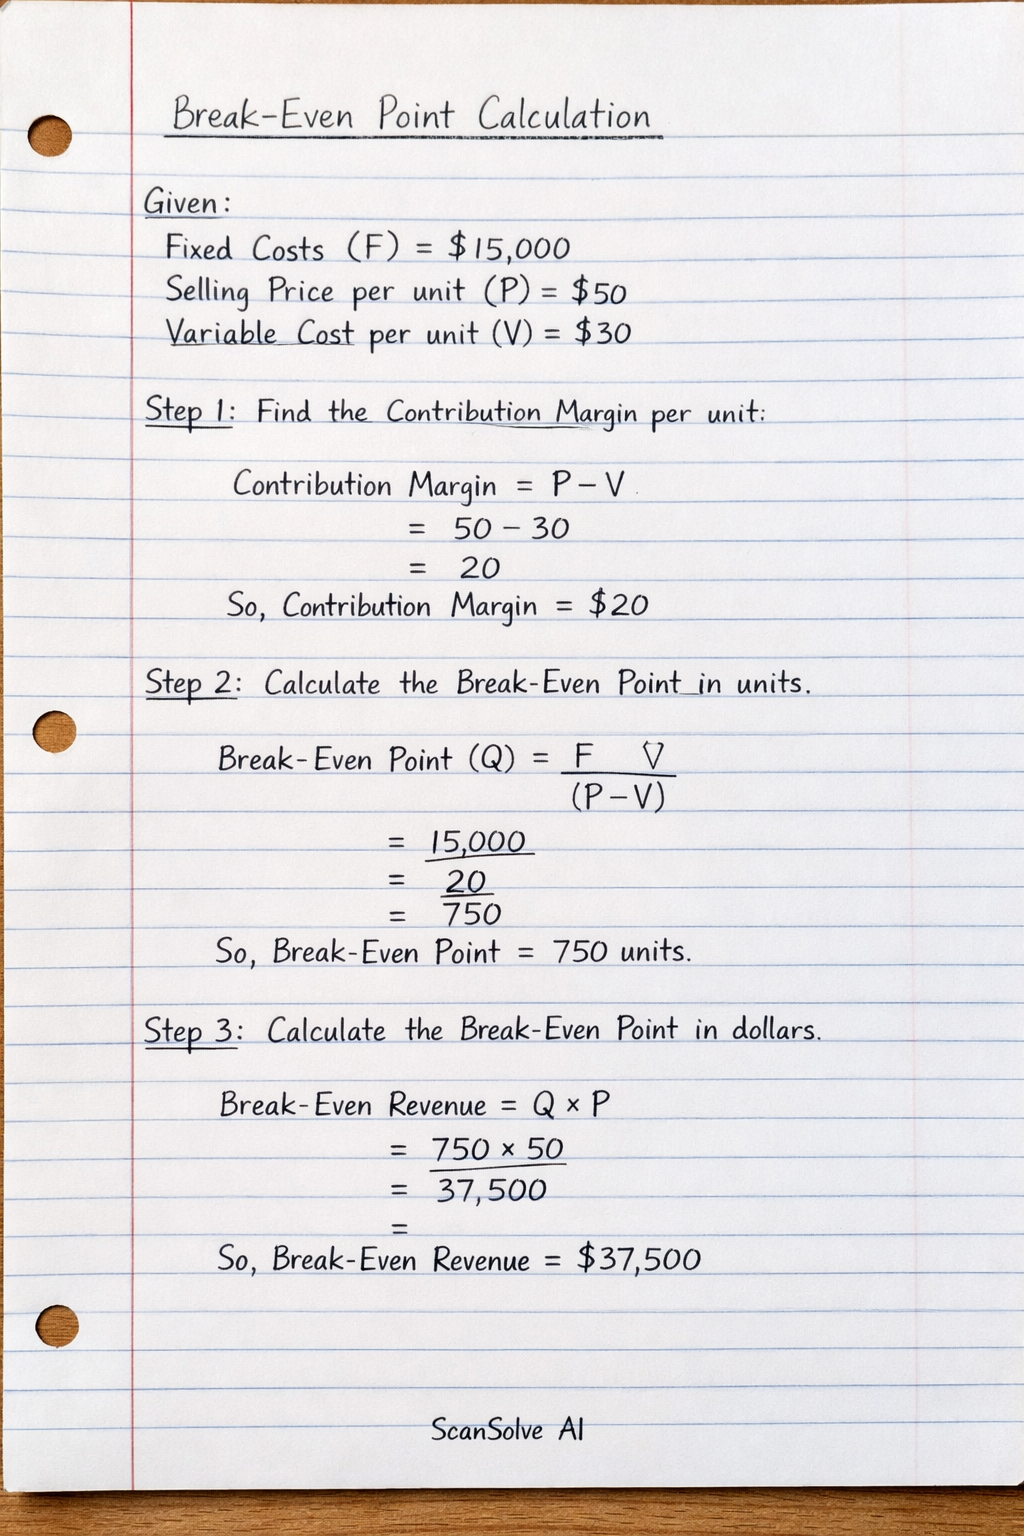 Break-Even Point Calculation
Given:
Fixed Costs (F) = $15,000
Selling Price per unit (P) = $50
Variable Cost per unit (V) = $30
Step 1: Find the Contribution Margin per unit:
Contribution Margin = P – V
= 50 – 30
= 20
So, Contribution Margin = $20
Step 2: Calculate the Break-Even Point in units.
Break-Even Point (Q) = F V
(P – V)
= 15,000
= 20
= 750
So, Break-Even Point = 750 units.
Step 3: Calculate the Break-Even Point in dollars.
Break-Even Revenue = Q × P
= 750 × 50
= 37,500
=
So, Break-Even Revenue = $37,500
ScanSolve AI